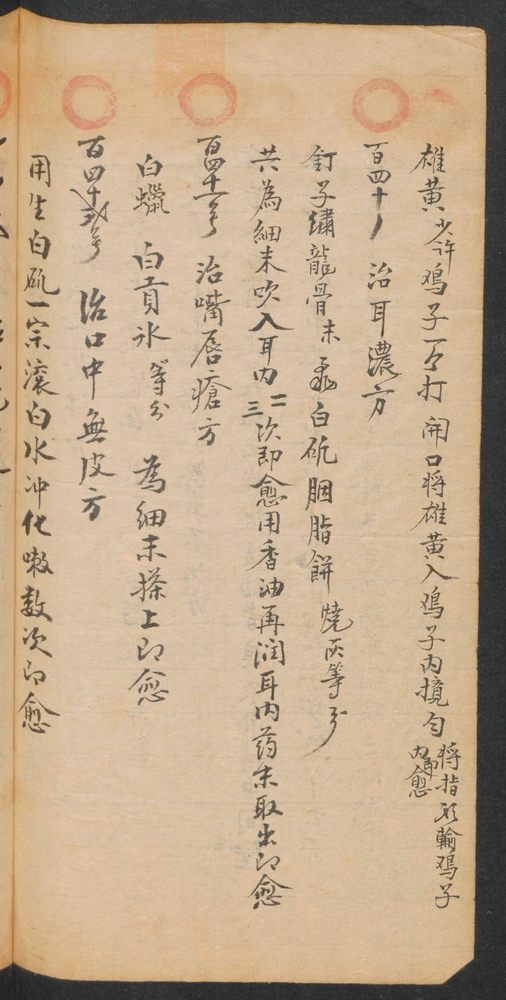 雄黄少许鸡子一个打開口将雄黄入鸡子内攪匀将指頭輪鸡子内即愈
百四十 治耳濃方
釘子繡龍骨末 白矾胭脂餅燒灰等分
共為細末吹入耳内二三次即愈用香油再润耳内药末取出即愈
百四十一号 治嘴唇瘡方
白蠟 白貢氷等分 為細末搽上即愈
百四十弍号 治口中無皮方
用生白矾一宗滚白水冲化漱数次即愈